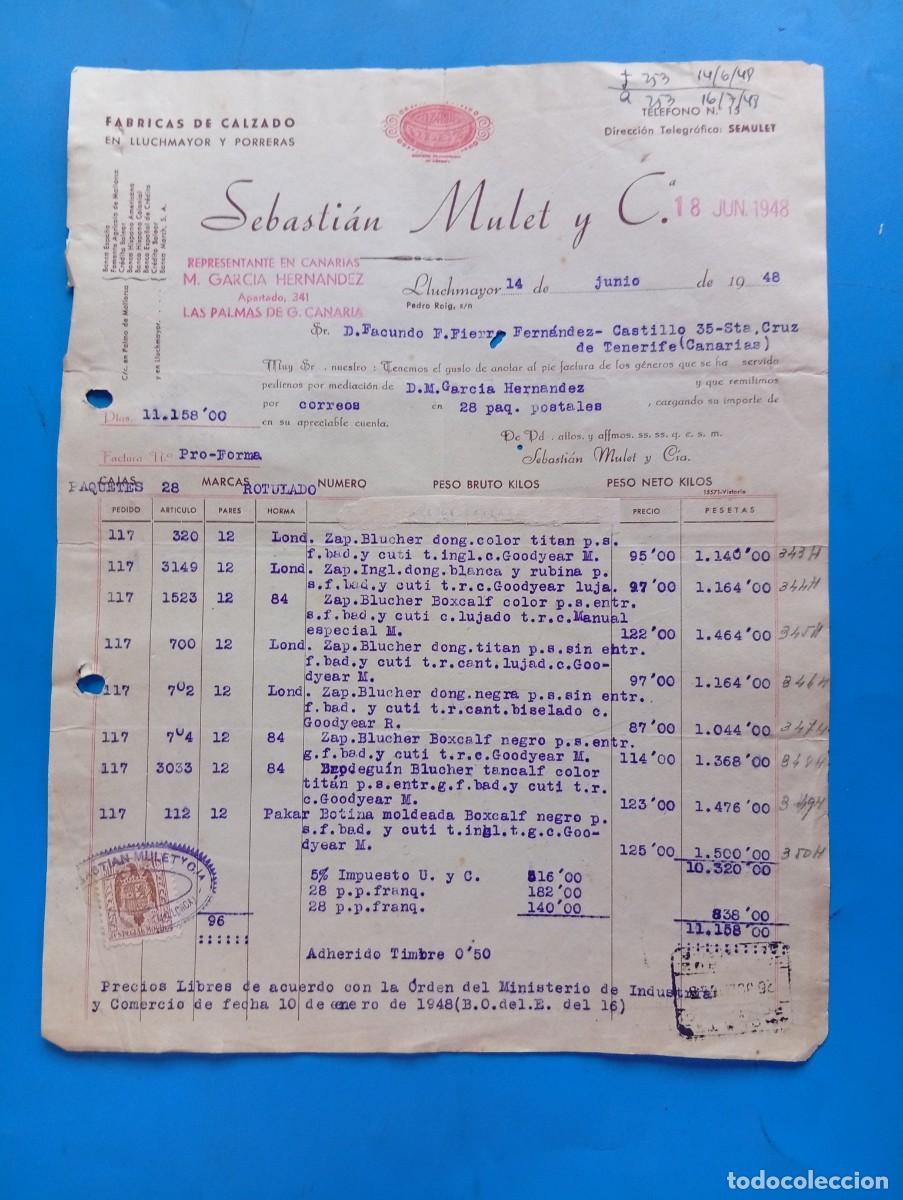 f 253 14/6/48
a 253 16/7/48
FABRICAS DE CALZADO
EN LLUCHMAYOR Y PORRERAS
TELEFONO N.º 13
Dirección Telegráfica: SEMULET
Sebastián Mulet y C.ª
18 JUN. 1948
C/c. en Palma de Mallorca
Banco España
Fomento Agrícola de Mallorca
Crédito Balear
Banco Hispano Americano
Banco Hispano Colonial
Banco Español de Crédito
y en Lluchmayor. . . .
Crédito Balear
Banca March, S. A.
REPRESENTANTE EN CANARIAS
M. GARCIA HERNANDEZ
Apartado, 341
LAS PALMAS DE G. CANARIA
Lluchmayor 14 de junio de 1948
Pedro Roig, s/n
Sr. D.Facundo F.Fierro Fernández- Castillo 35-Sta,Cruz
de Tenerife(Canarias)
Muy Sr. nuestro: Tenemos el gusto de anotar al pie factura de los géneros que se ha servido
pedirnos por mediación de D.M.Garcia Hernandez y que remitimos
por correos en 28 paq. postales , cargando su importe de
Ptas. 11.158'00 en su apreciable cuenta.
De Vd. attos. y affmos. ss. ss. q. e. s. m.
Sebastián Mulet y Cía.
Factura N.º Pro-Forma
CAJAS PAQUETES 28 MARCAS ROTULADO NUMERO PESO BRUTO KILOS PESO NETO KILOS
15571-Victoria
PEDIDO ARTICULO PARES HORMA PRECIO PESETAS
117 320 12 Lond. Zap.Blucher dong.color titan p.s.
f.bad.y cuti t.ingl.c.Goodyear M. 95'00 1.140'00 343H
117 3149 12 Lond. Zap.Ingl.dong.blanca y rubina p.
s.f.bad.y cuti t.r.c.Goodyear luja. 97'00 1.164'00 344H
117 1523 12 84 Zap.Blucher Boxcalf color p.s.entr.
s.f.bad.y cuti c.lujado t.r.c.Manual
especial M. 122'00 1.464'00 345H
117 700 12 Lond. Zap.Blucher dong.titan p.s.sin entr.
f.bad.y cuti t.r.cant.lujad.c.Goo-
dyear M. 97'00 1.164'00 346H
117 702 12 Lond. Zap.Blucher dong.negra p.s.sin entr.
f.bad. y cuti t.r.cant.biselado c.
Goodyear R. 87'00 1.044'00 347H
117 704 12 84 Zap.Blucher Boxcalf negro p.s.entr.
g.f.bad.y cuti t.r.c.Goodyear M. 114'00 1.368'00 348H
117 3033 12 84 Brodeguín Blucher tancalf color
titán p.s.entr.g.f.bad.y cuti t.r.
c.Goodyear M. 123'00 1.476'00 349H
117 112 12 Pakar Botina moldeada Boxcalf negro p.
s.f.bad. y cuti t.ingl.t.g.c.Goo-
dyear M. 125'00 1.500'00 350H
10.320'00
5% Impuesto U. y C. 516'00
28 p.p.franq. 182'00
28 p.p.franq. 140'00
96 838'00
11.158'00
SEBASTIAN MULET Y CIA
(MALLORCA)
Adherido Timbre 0'50
Precios Libres de acuerdo con la Órden del Ministerio de Industria
y Comercio de fecha 10 de enero de 1948(B.O.del.E. del 16)
todocoleccion